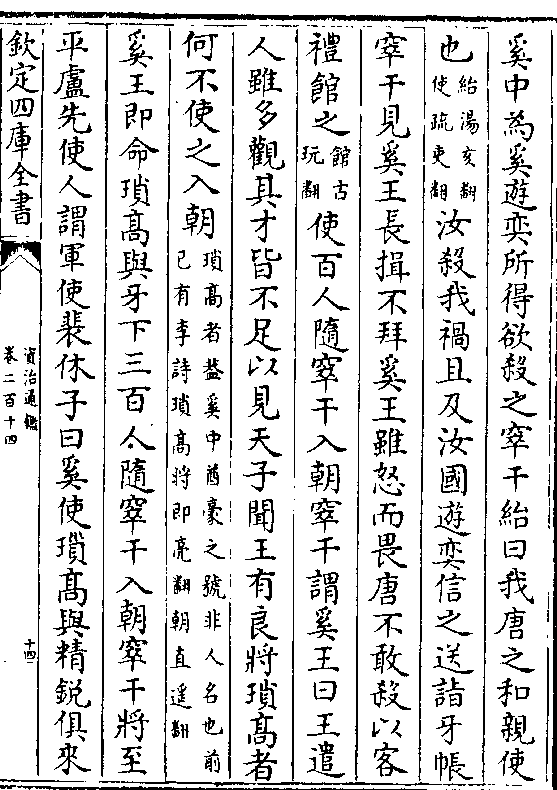 奚中為奚遊奕所得欲殺之窣干紿曰我唐之和親使
也紿湯亥翻使疏吏翻汝殺我禍且及汝國遊奕信之送詣牙帳
窣干見奚王長揖不拜奚王雖怒而畏唐不敢殺以客
禮館之館古玩翻使百人隨窣干入朝窣干謂奚王曰王遣
人雖多觀其才皆不足以見天子聞王有良將瑣髙者
何不使之入朝瑣髙者葢奚中酋豪之號非人名也前已有李詩瑣髙將即亮翻朝直遥翻
奚王即命瑣髙與牙下三百人隨窣干入朝窣干將至
平盧先使人謂軍使裴休子曰奚使瑣髙與精鋭俱來
欽定四庫全書
資治通鑑
卷二百十四
十四